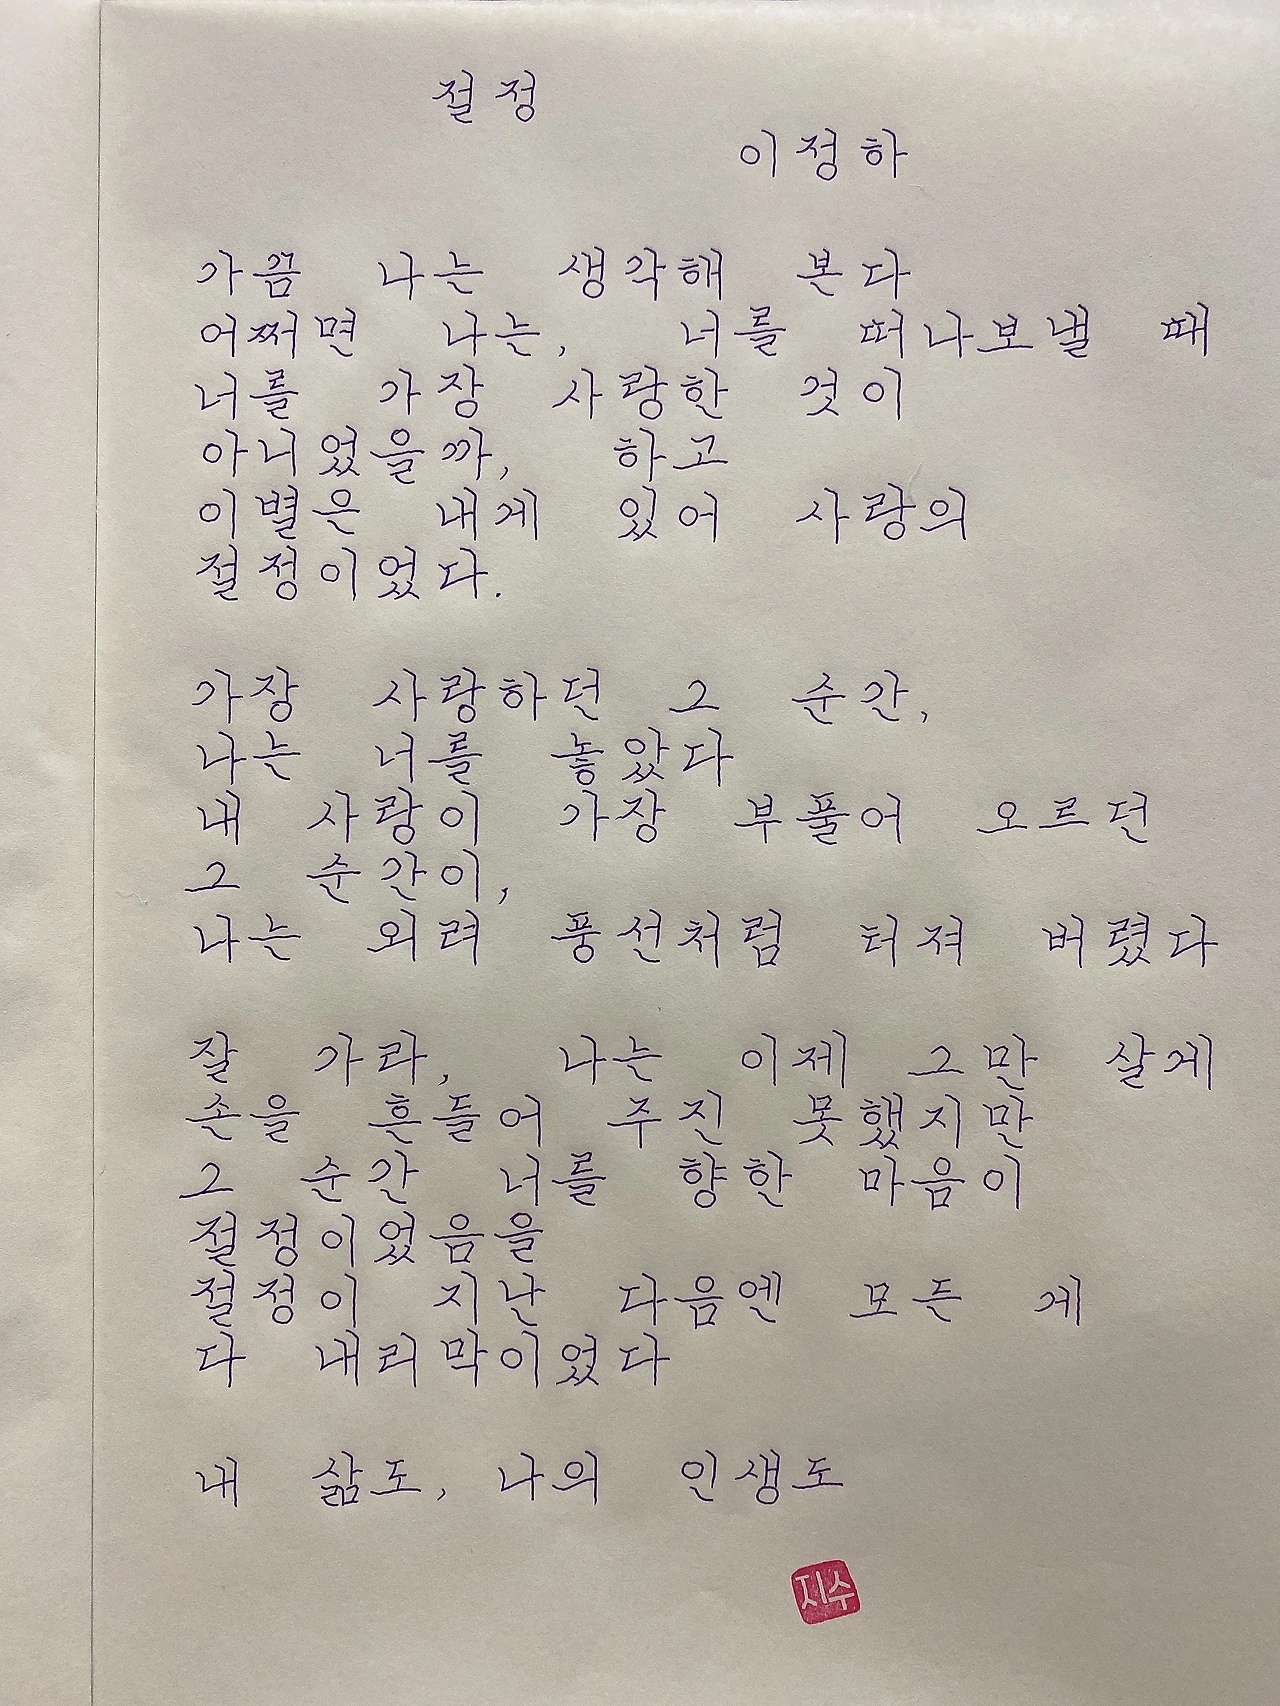 절정
이정하
가끔 나는 생각해 본다
어쩌면 나는, 너를 떠나보낼 때
너를 가장 사랑한 것이
아니었을까, 하고
이별은 내게 있어 사랑의
절정이었다.
가장 사랑하던 그 순간,
나는 너를 놓았다
내 사랑이 가장 부풀어 오르던
그 순간이,
나는 외려 풍선처럼 터져 버렸다
잘 가라, 나는 이제 그만 살게
손을 흔들어 주진 못했지만
그 순간 너를 향한 마음이
절정이었음을
절정이 지난 다음엔 모든 게
다 내리막이었다
내 삶도, 나의 인생도
지수